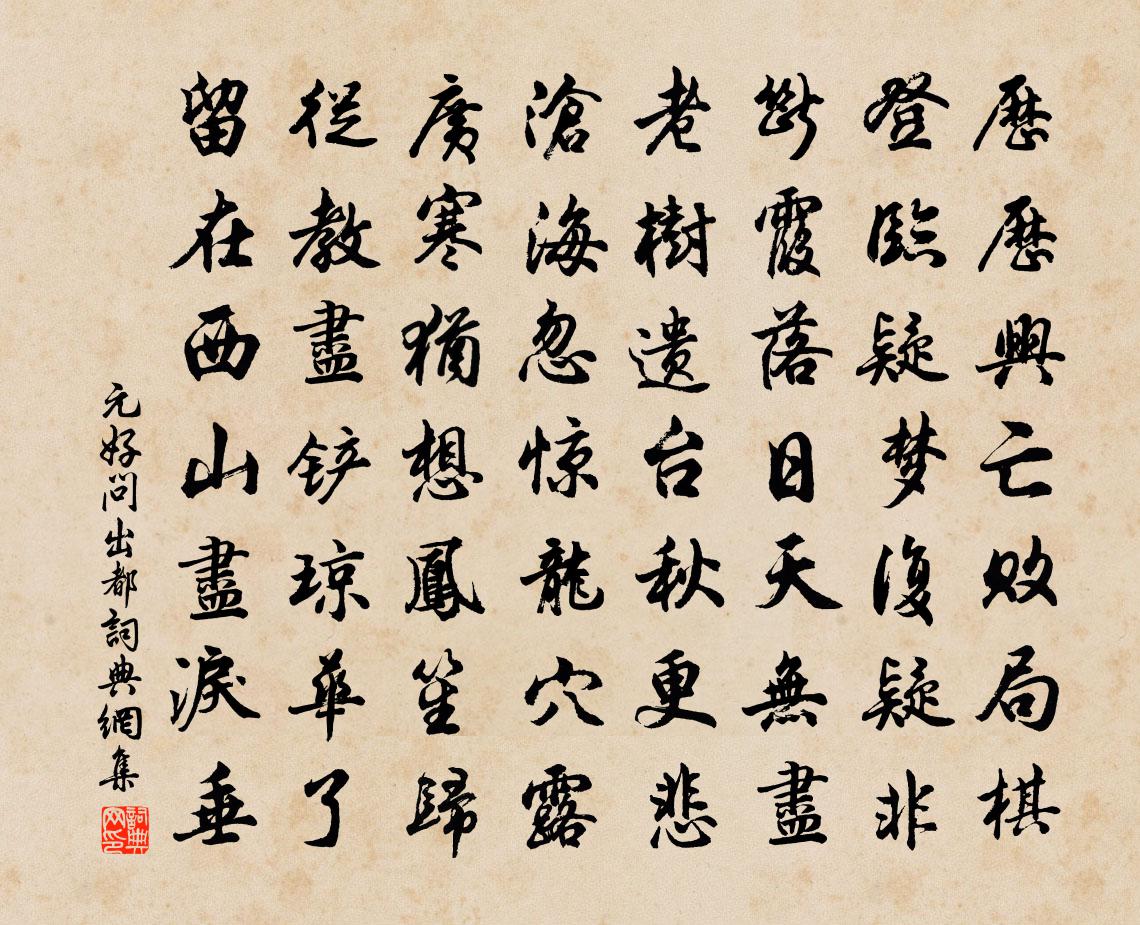 歷歷興亡敗局棋
登臨疑夢復疑非
斷霞落日天無盡
老樹遺台秋更悲
滄海忽惊龍穴露
廣寒猶想鳳笙歸
從教盡铲琼華了
留在西山盡淚垂
元好問出都詞典網集
詞典网印